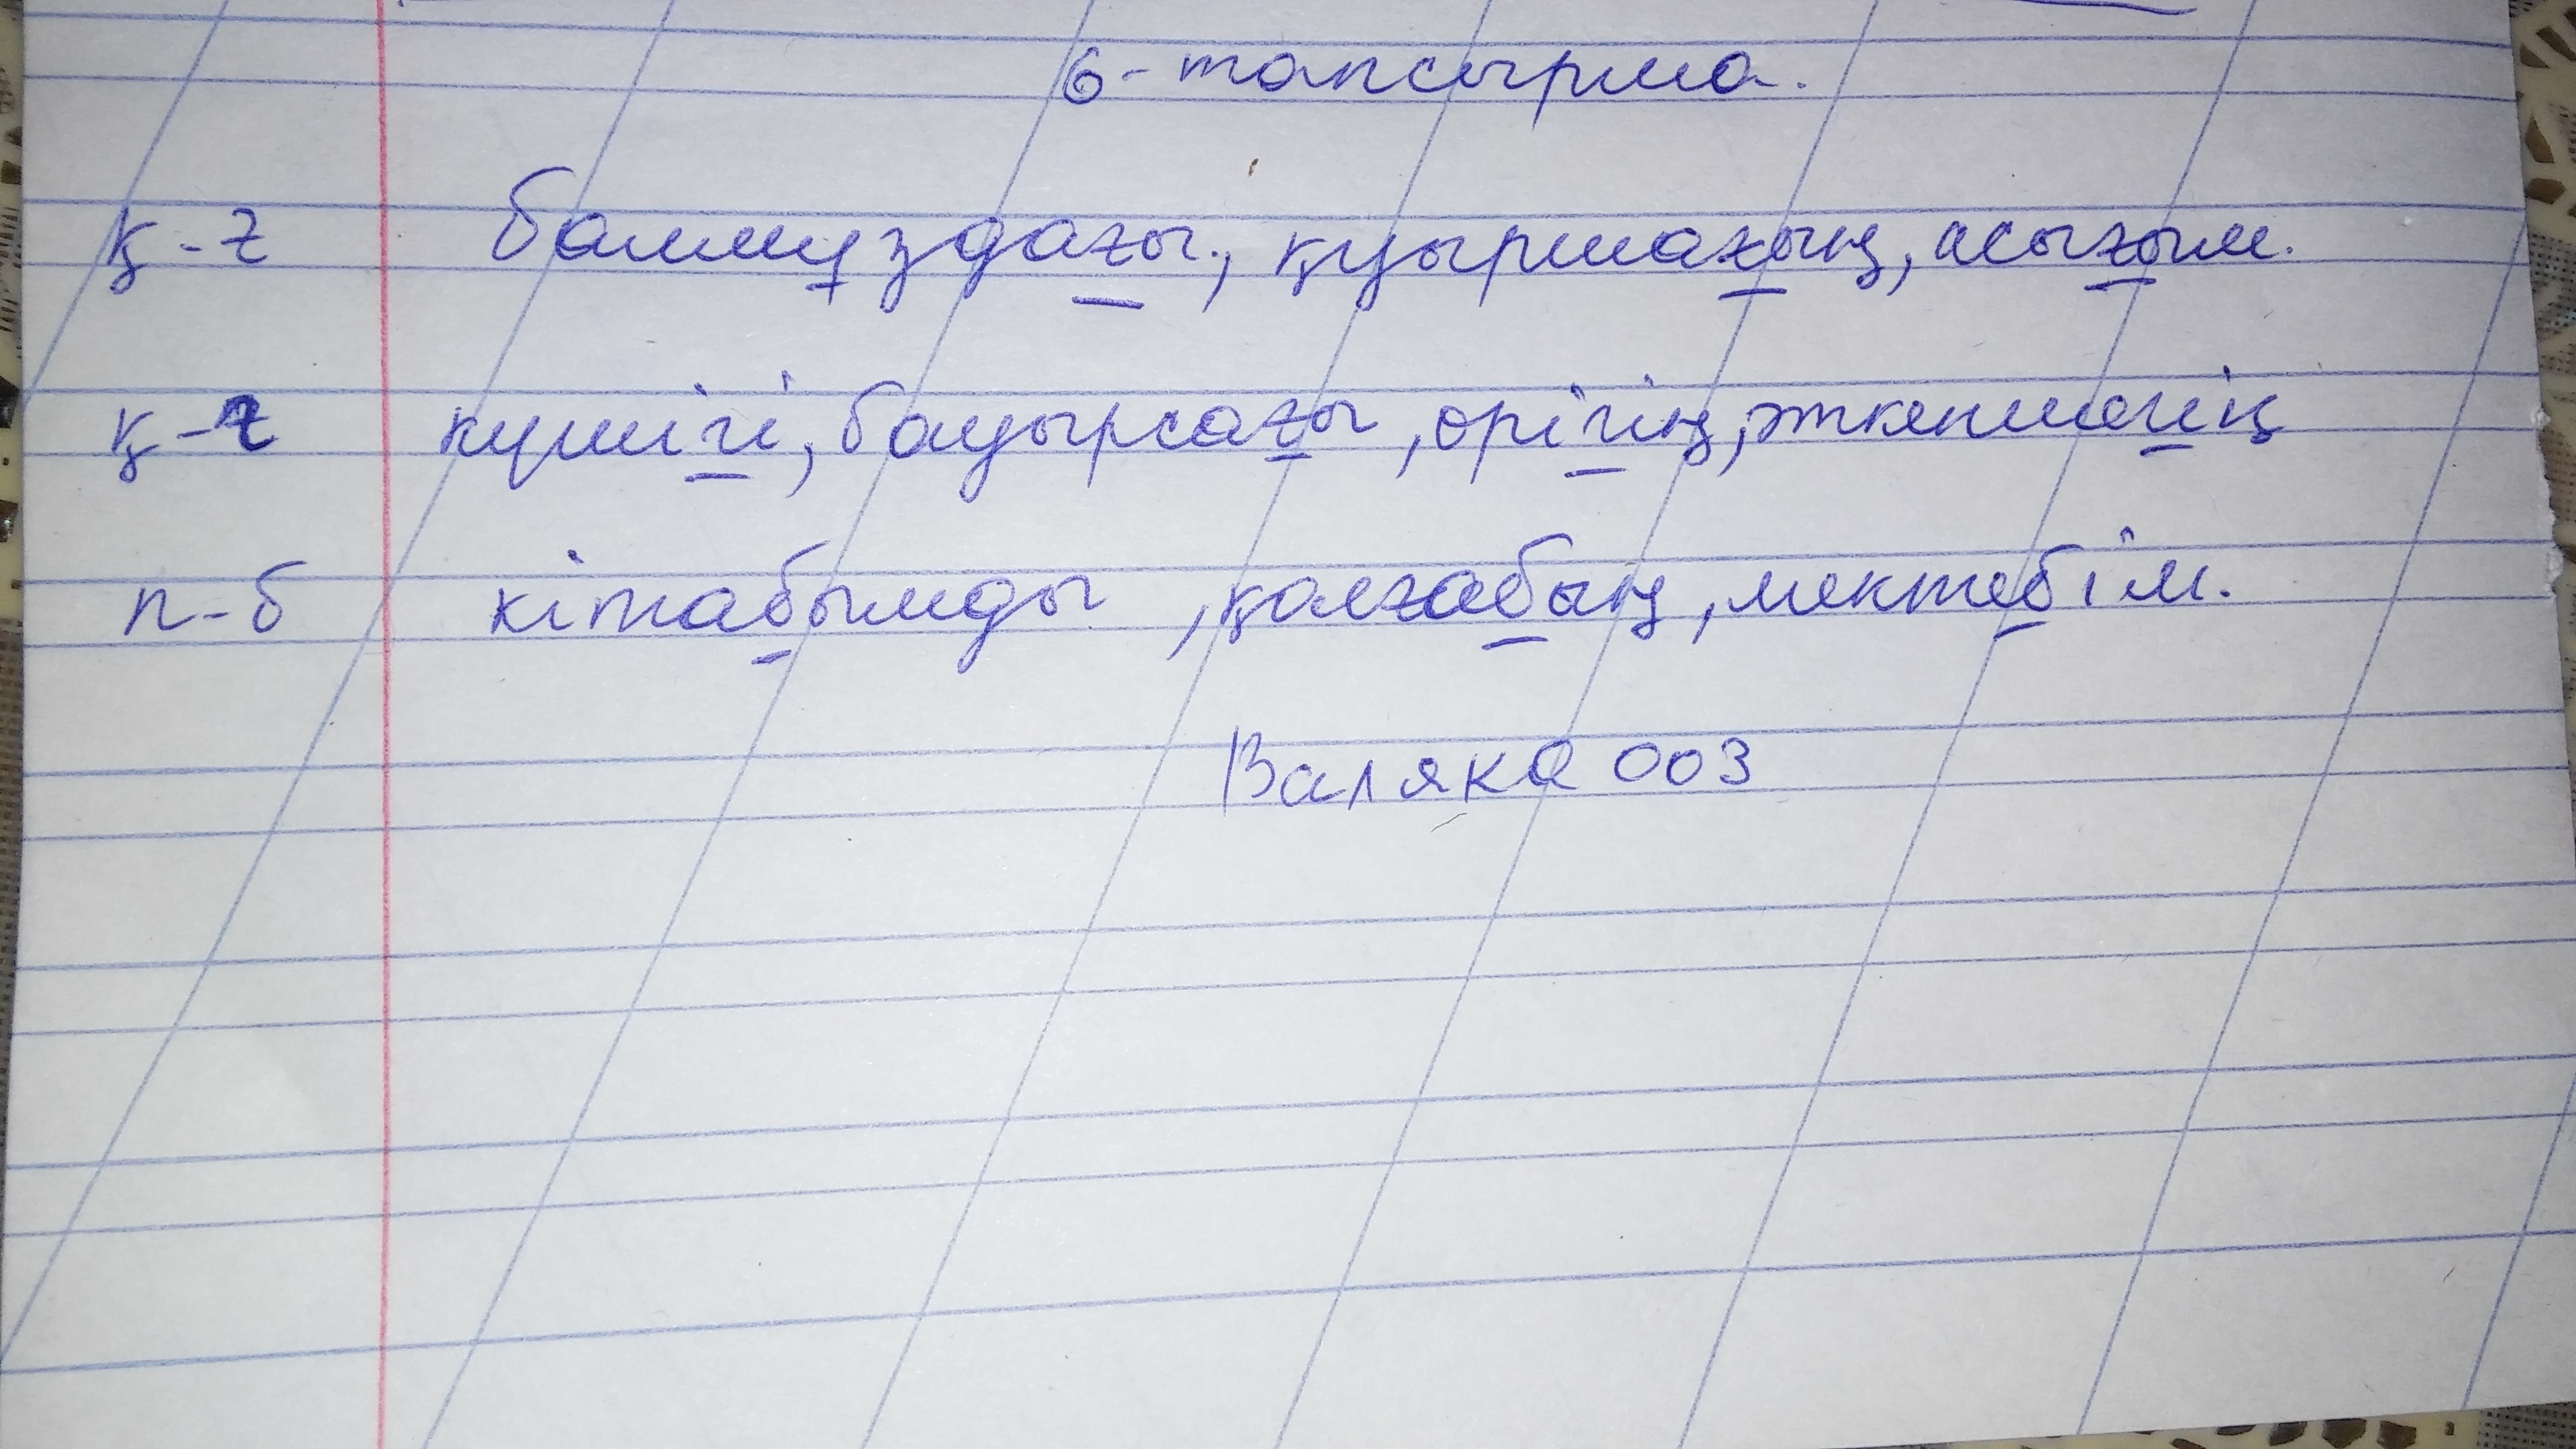 6-тапсырма.
қ-ғ балмұздағы., қуырмағың, асығым.
қ-ғ күшігі, бауырсағы, өрігің, әткеншегің
п-б кітабымды, қалғабың, мектебім.
Валяка 003